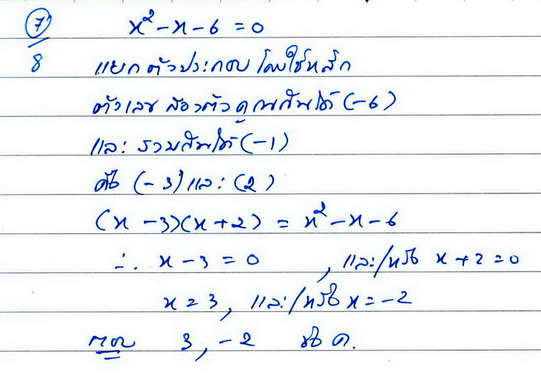 7 x² - x - 6 = 0
8 แยกตัวประกอบ โดยใช้หลัก
ตัวเลข สองตัวคูณกันได้ (-6)
และ รวมกันได้ (-1)
คือ (-3) และ (2)
(x - 3)(x + 2) = x² - x - 6
∴ x - 3 = 0 , และ/หรือ x + 2 = 0
x = 3 , และ/หรือ x = -2
ตอบ 3, -2 ข้อ ค.